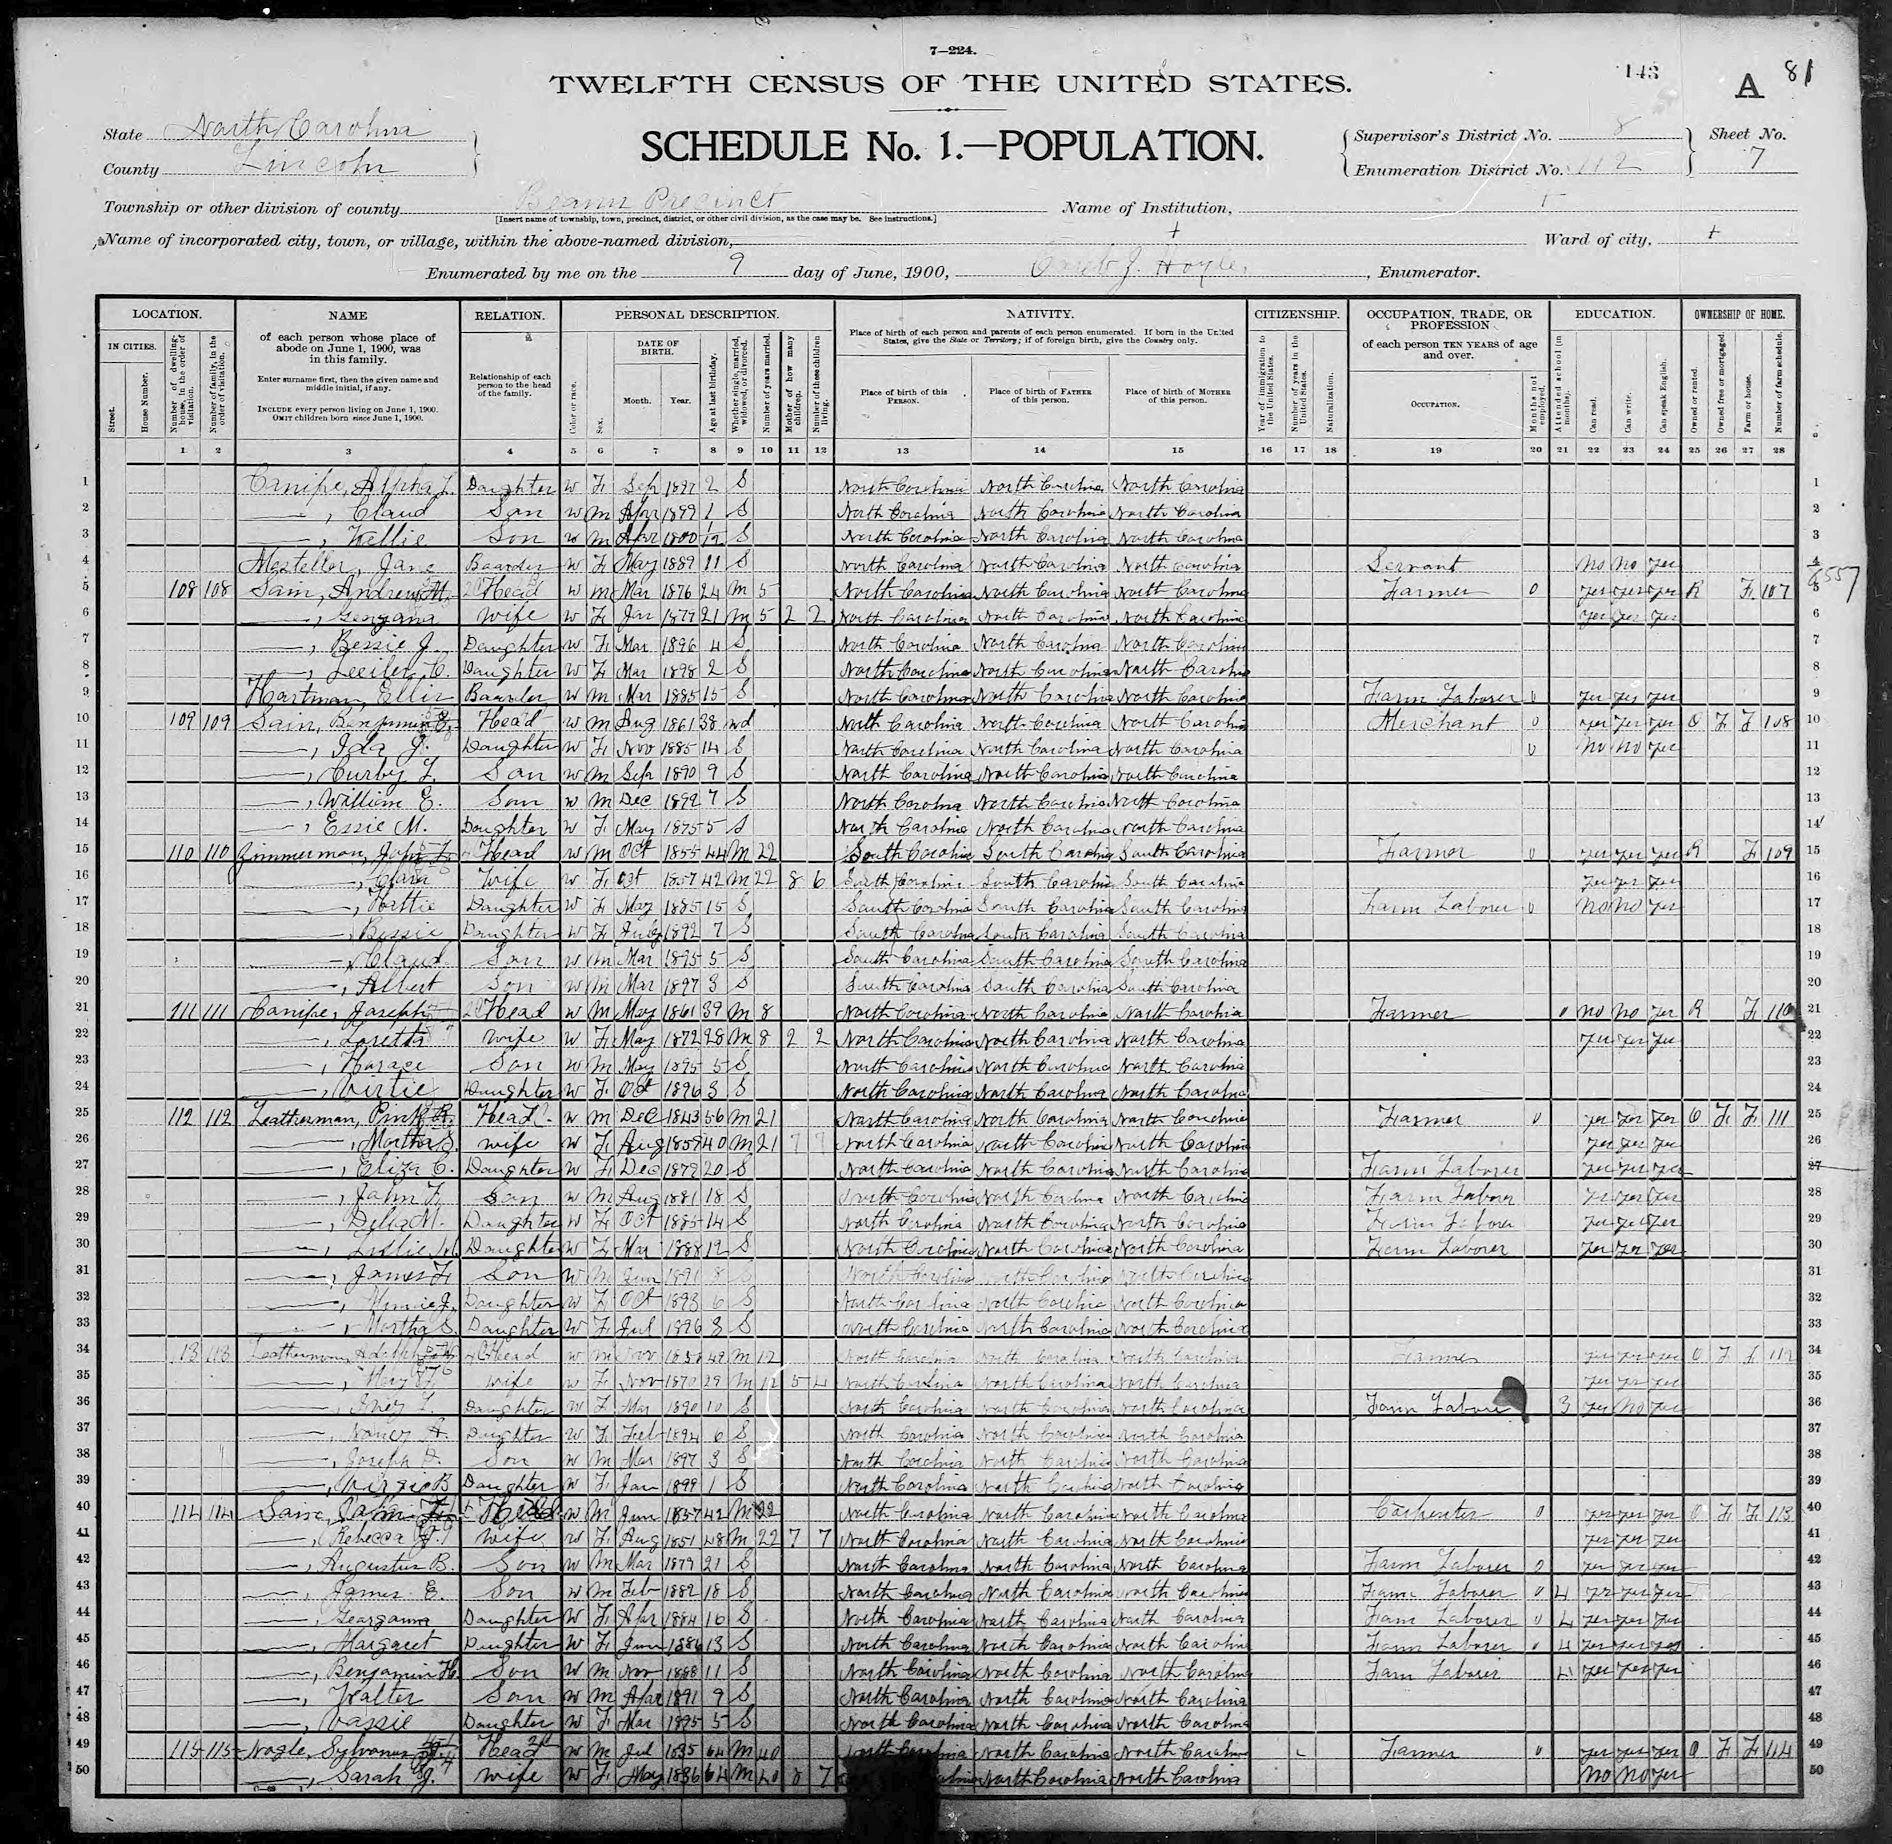 7—224.
TWELFTH CENSUS OF THE UNITED STATES.
143 A 81
State North Carolina
County Lincoln
SCHEDULE No. 1.—POPULATION.
Supervisor's District No. 8
Enumeration District No. 112
Sheet No. 7
Township or other division of county Precinct
[Insert name of township, town, precinct, district, or other civil division, as the case may be. See instructions.]
Name of Institution,
Name of incorporated city, town, or village, within the above-named division,
Ward of city,
Enumerated by me on the 9 day of June, 1900, J. Hoyle, Enumerator.
LOCATION. NAME RELATION. PERSONAL DESCRIPTION. NATIVITY. CITIZENSHIP. OCCUPATION, TRADE, OR PROFESSION EDUCATION. OWNERSHIP OF HOME.
IN CITIES.
Street.
House Number.
Number of dwelling-house, in the order of visitation.
Number of family, in the order of visitation.
of each person whose place of abode on June 1, 1900, was in this family.
Enter surname first, then the given name and middle initial, if any.
INCLUDE every person living on June 1, 1900.
OMIT children born since June 1, 1900.
Relationship of each person to the head of the family.
Color or race.
Sex.
DATE OF BIRTH.
Month. Year.
Age at last birthday.
Whether single, married, widowed, or divorced.
Number of years married.
Mother of how many children.
Number of these children living.
Place of birth of each person and parents of each person enumerated. If born in the United States, give the State or Territory; if of foreign birth, give the Country only.
Place of birth of this PERSON.
Place of birth of FATHER of this person.
Place of birth of MOTHER of this person.
Year of immigration to the United States.
Number of years in the United States.
Naturalization.
of each person TEN YEARS of age and over.
OCCUPATION.
Months not employed.
Attended school (in months).
Can read.
Can write.
Can speak English.
Owned or rented.
Owned free or mortgaged.
Farm or house.
Number of farm schedule.
1 2 3 4 5 6 7 8 9 10 11 12 13 14 15 16 17 18 19 20 21 22 23 24 25 26 27 28
1 Canipe, Alpha L. Daughter W F Sep 1897 2 S North Carolina North Carolina North Carolina 1
2 —, Claud Son W M Apr 1899 1 S North Carolina North Carolina North Carolina 2
3 —, Son W M Apr 1900 1/12 S North Carolina North Carolina North Carolina 3
4 Mosteller, Jane Boarder W F May 1889 11 S North Carolina North Carolina North Carolina Servant no no yes 4
5 108 108 Sain, Andrew M. Head W M Mar 1876 24 M 5 North Carolina North Carolina North Carolina Farmer 0 yes yes yes R F 107 5
6 —, wife W F Jan 1879 21 M 5 2 2 North Carolina North Carolina North Carolina yes yes yes 6
7 —, Bessie J. Daughter W F Mar 1896 4 S North Carolina North Carolina North Carolina 7
8 —, Daughter W F Mar 1898 2 S North Carolina North Carolina North Carolina 8
9 Hartman, Ellis Boarder W M Mar 1885 15 S North Carolina North Carolina North Carolina Farm Laborer 0 yes yes yes 9
10 109 109 Sain, Benjamin E. Head W M Aug 1861 38 wd North Carolina North Carolina North Carolina Merchant 0 yes yes yes O F F 108 10
11 —, Ida J. Daughter W F Nov 1885 14 S North Carolina North Carolina North Carolina 0 no no yes 11
12 —, Curby L. Son W M Sep 1890 9 S North Carolina North Carolina North Carolina 12
13 —, William E. Son W M Dec 1892 7 S North Carolina North Carolina North Carolina 13
14 —, Essie M. Daughter W F May 1895 5 S North Carolina North Carolina North Carolina 14
15 110 110 Zimmerman, John F. Head W M Oct 1855 44 M 22 South Carolina South Carolina South Carolina Farmer 0 yes yes yes R F 109 15
16 —, Clara Wife W F Oct 1857 42 M 22 8 6 South Carolina South Carolina South Carolina yes yes yes 16
17 —, Hattie Daughter W F May 1885 15 S South Carolina South Carolina South Carolina Farm Laborer 0 no no yes 17
18 —, Bessie Daughter W F July 1892 7 S South Carolina South Carolina South Carolina 18
19 —, Claud Son W M Mar 1895 5 S South Carolina South Carolina South Carolina 19
20 —, Albert Son W M Mar 1897 3 S South Carolina South Carolina South Carolina 20
21 111 111 Canipe, Joseph Head W M May 1861 39 M 8 North Carolina North Carolina North Carolina Farmer 0 no no yes R F 110 21
22 —, Loretta wife W F May 1872 28 M 8 2 2 North Carolina North Carolina North Carolina yes yes yes 22
23 —, Horace Son W M May 1895 5 S North Carolina North Carolina North Carolina 23
24 —, Virtie Daughter W F Oct 1896 3 S North Carolina North Carolina North Carolina 24
25 112 112 Leatherman, Pink A. Head W M Dec 1843 56 M 21 North Carolina North Carolina North Carolina Farmer 0 yes yes yes O F F 111 25
26 —, Martha S. wife W F Aug 1859 40 M 21 7 7 North Carolina North Carolina North Carolina yes yes yes 26
27 —, Eliza C. Daughter W F Dec 1879 20 S North Carolina North Carolina North Carolina Farm Laborer yes yes yes 27
28 —, John F. Son W M Aug 1881 18 S North Carolina North Carolina North Carolina Farm Laborer yes yes yes 28
29 —, Delia M. Daughter W F Oct 1885 14 S North Carolina North Carolina North Carolina Farm Laborer yes yes yes 29
30 —, Daughter W F Mar 1888 12 S North Carolina North Carolina North Carolina Farm Laborer yes yes yes 30
31 —, James F. Son W M Jun 1891 8 S North Carolina North Carolina North Carolina 31
32 —, Minnie J. Daughter W F Oct 1893 6 S North Carolina North Carolina North Carolina 32
33 —, Martha S. Daughter W F Jul 1896 3 S North Carolina North Carolina North Carolina 33
34 113 113 Leatherman, Head W M Nov 1850 49 M 12 North Carolina North Carolina North Carolina Farmer yes yes yes O F F 112 34
35 —, Mary wife W F Nov 1870 29 M 12 5 4 North Carolina North Carolina North Carolina yes yes yes 35
36 —, Iney L. Daughter W F Mar 1890 10 S North Carolina North Carolina North Carolina Farm Laborer 3 yes no yes 36
37 —, Nancy A. Daughter W F Feb 1894 6 S North Carolina North Carolina North Carolina 37
38 —, Joseph Son W M Mar 1897 3 S North Carolina North Carolina North Carolina 38
39 —, Virgie B Daughter W F Jan 1899 1 S North Carolina North Carolina North Carolina 39
40 114 114 Sain, John Head W M Jun 1857 42 M 22 North Carolina North Carolina North Carolina Carpenter 0 yes yes yes O F F 113 40
41 —, Rebecca J. wife W F Aug 1851 48 M 22 7 7 North Carolina North Carolina North Carolina yes yes yes 41
42 —, Augustus B. Son W M Mar 1879 21 S North Carolina North Carolina North Carolina Farm Laborer 0 yes yes yes 42
43 —, James E. Son W M Feb 1882 18 S North Carolina North Carolina North Carolina Farm Laborer 0 4 yes yes yes 43
44 —, Georganna Daughter W F Apr 1884 16 S North Carolina North Carolina North Carolina Farm Laborer 0 4 yes yes yes 44
45 —, Margaret Daughter W F Jun 1886 13 S North Carolina North Carolina North Carolina Farm Laborer 0 4 yes yes yes 45
46 —, Benjamin H. Son W M Nov 1888 11 S North Carolina North Carolina North Carolina Farm Laborer 4 yes yes yes 46
47 —, Walter Son W M Apr 1891 9 S North Carolina North Carolina North Carolina 47
48 —, Vassie Daughter W F Mar 1895 5 S North Carolina North Carolina North Carolina 48
49 115 115 Nogle, Sylvanus Head W M Jul 1835 64 M 40 North Carolina North Carolina North Carolina Farmer 0 yes yes yes O F F 114 49
50 —, Sarah J. wife W F May 1836 64 M 40 8 7 North Carolina North Carolina no no yes 50